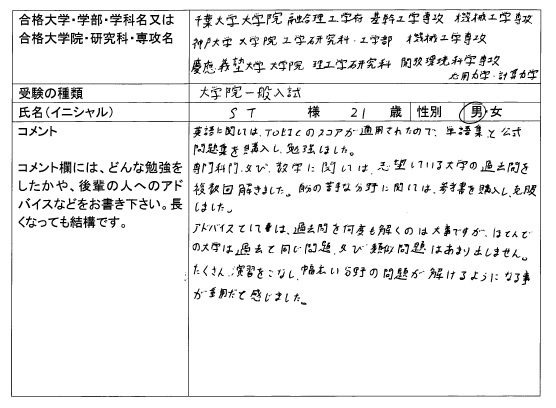 合格大学・学部・学科名又は
合格大学院・研究科・専攻名
千葉大学大学院 融合理工学府 基幹工学専攻 機械工学専攻
神戸大学 大学院 工学研究科・工学部 機械工学専攻
慶應義塾大学 大学院 理工学研究科 開放環境科学専攻
応用力学・計算力学
受験の種類
大学院一般入試
氏名(イニシャル)
S T 様 21 歳 性別 男・女
コメント
コメント欄には、どんな勉強を
したかや、後輩の人へのアド
バイスなどをお書き下さい。長
くなっても結構です。
英語に関しては、TOEICのスコアが適用されたので、単語集と公式
問題集を購入し、勉強しました。
専門科目、及び、数学に関しては、志望している大学の過去問を
複数回解きました。苦手な分野に関しては、参考書を購入し、克服
しました。
アドバイスとしては、過去問を何度も解くのは大事ですが、ほとんど
の大学は過去と同じ問題、及び類似問題はあまり出しません。
たくさん演習をこなし、幅広い分野の問題が解けるようになる事
が重要だと感じました。